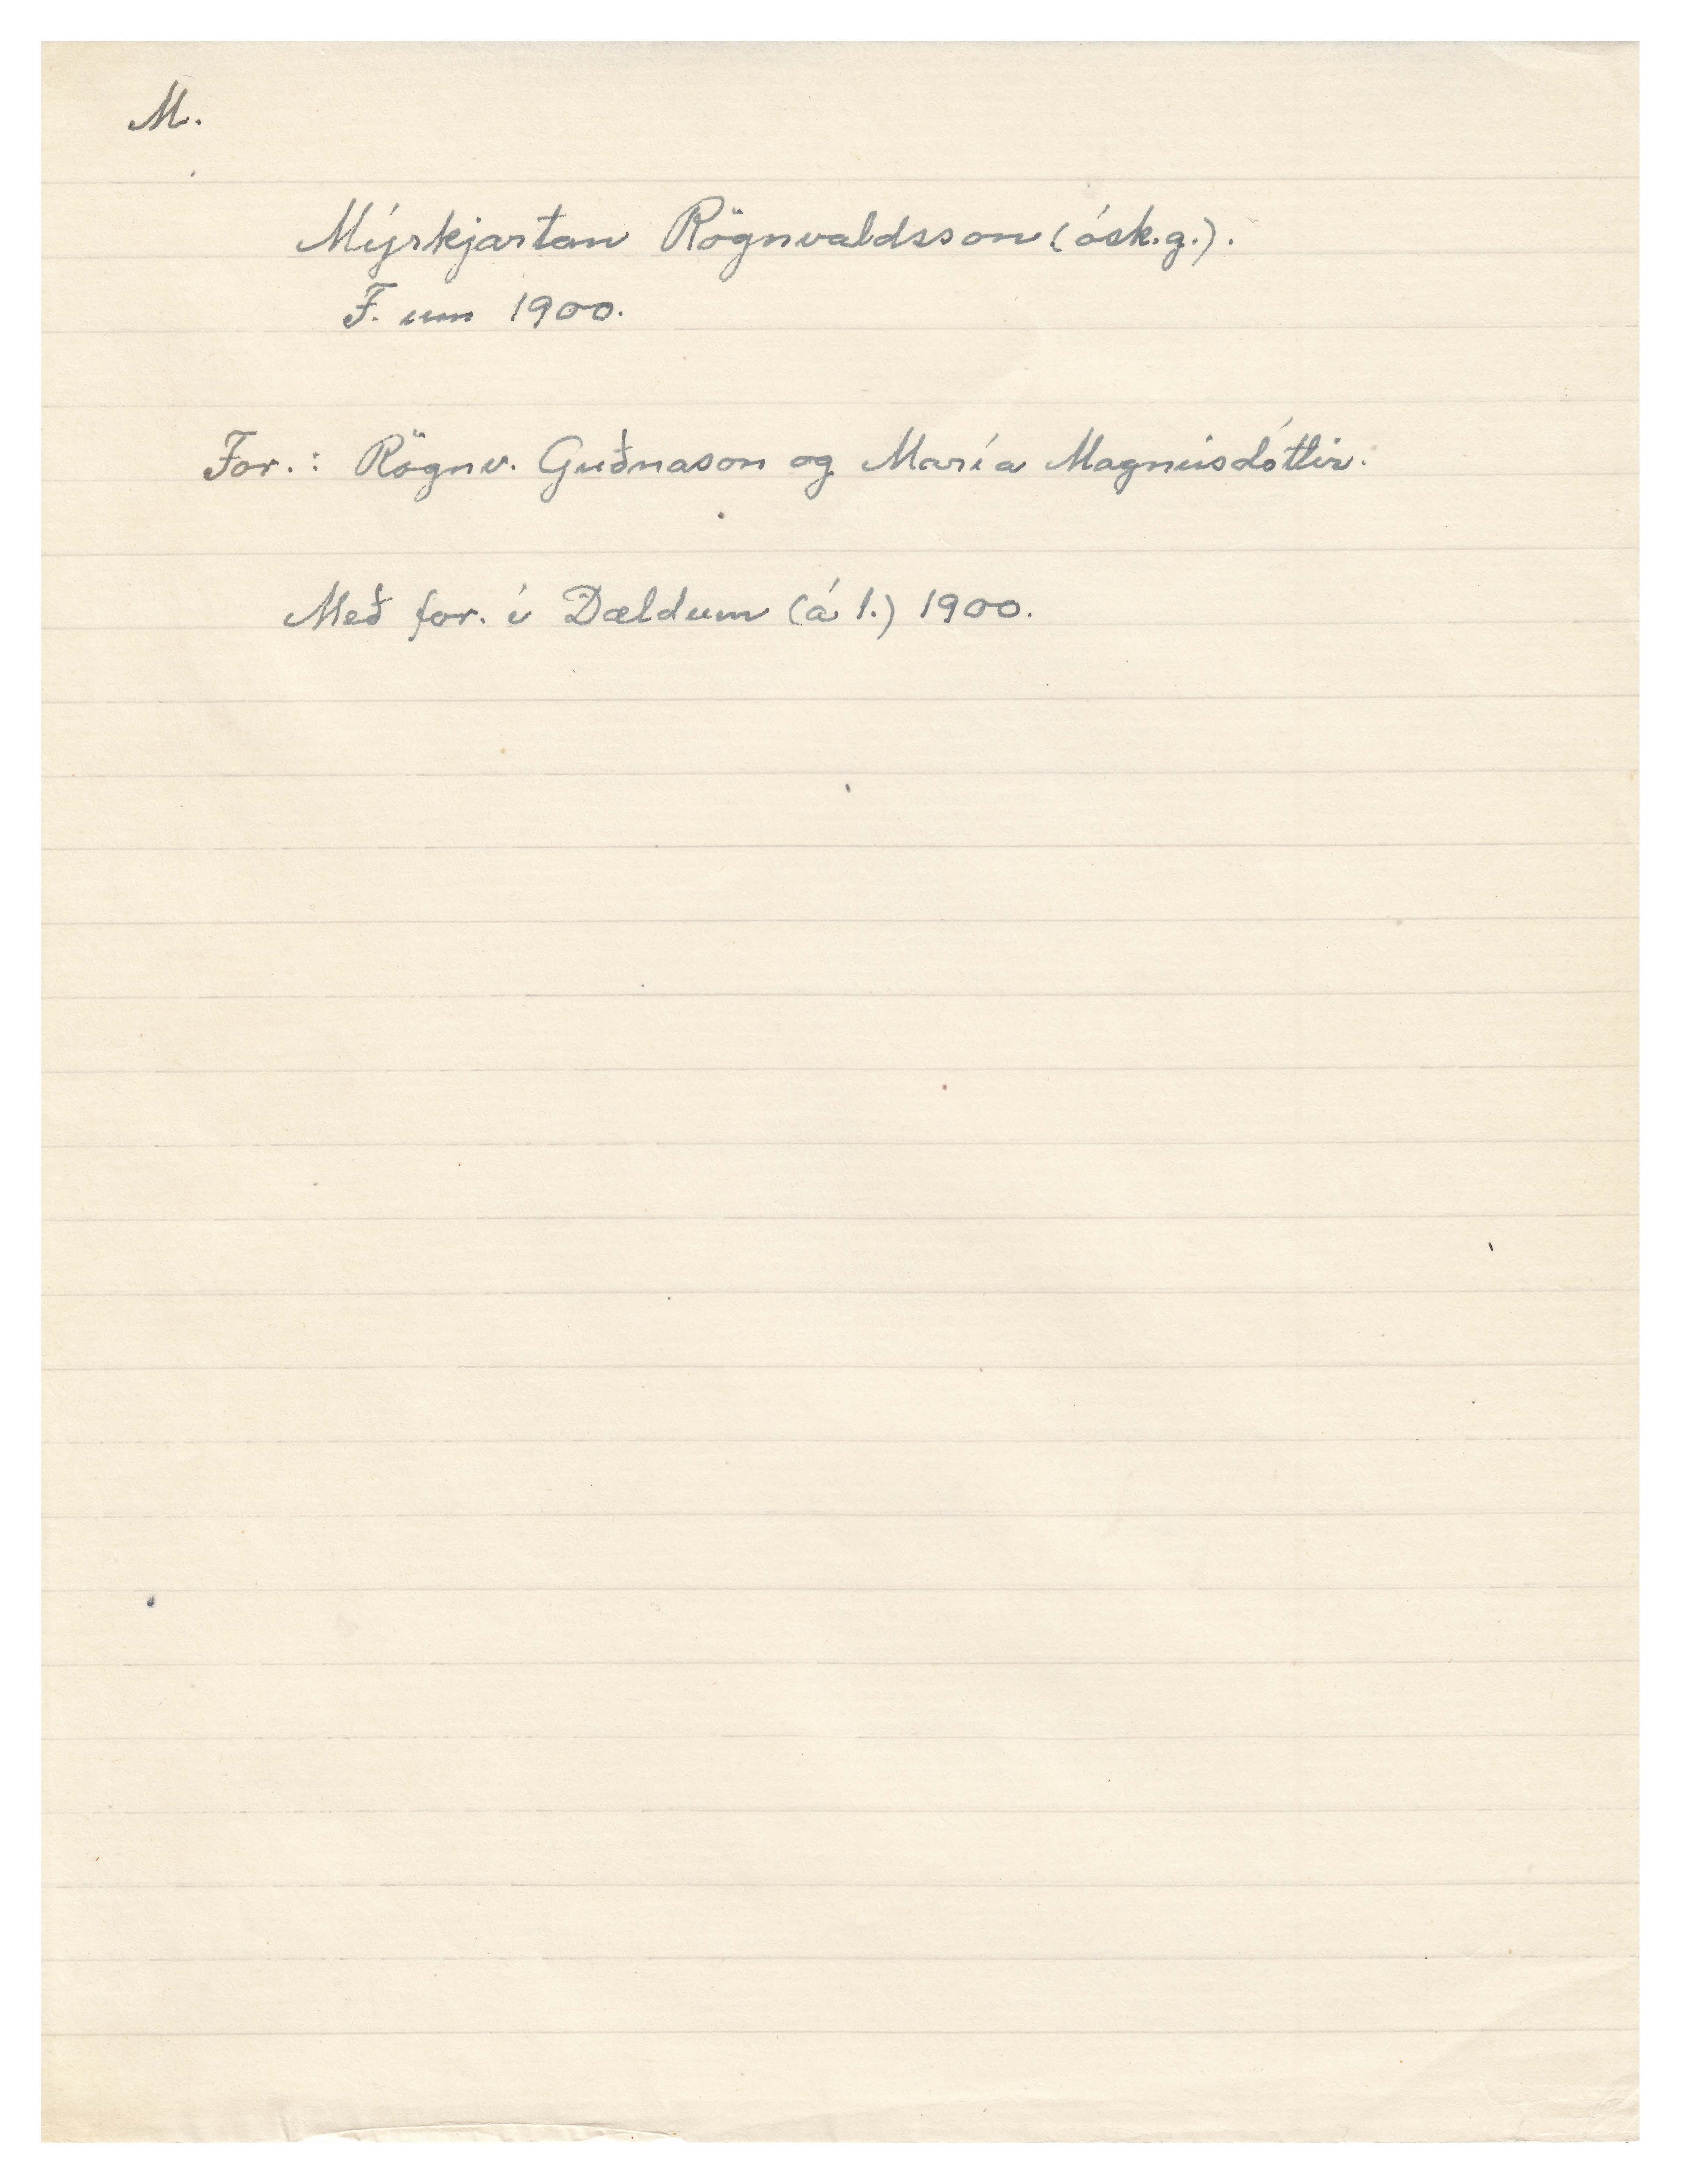 M.
Mýrkjartan Rögnvaldsson (ósk.g.).
F. um 1900.
For.: Rögnv. Guðnason og María Magnúsdóttir.
Með for. í Dældum (á 1.) 1900.